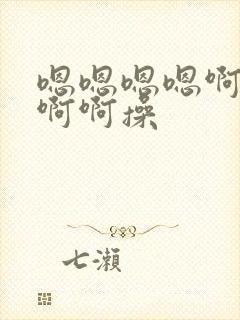 嗯嗯嗯嗯啊
啊啊操
七濑